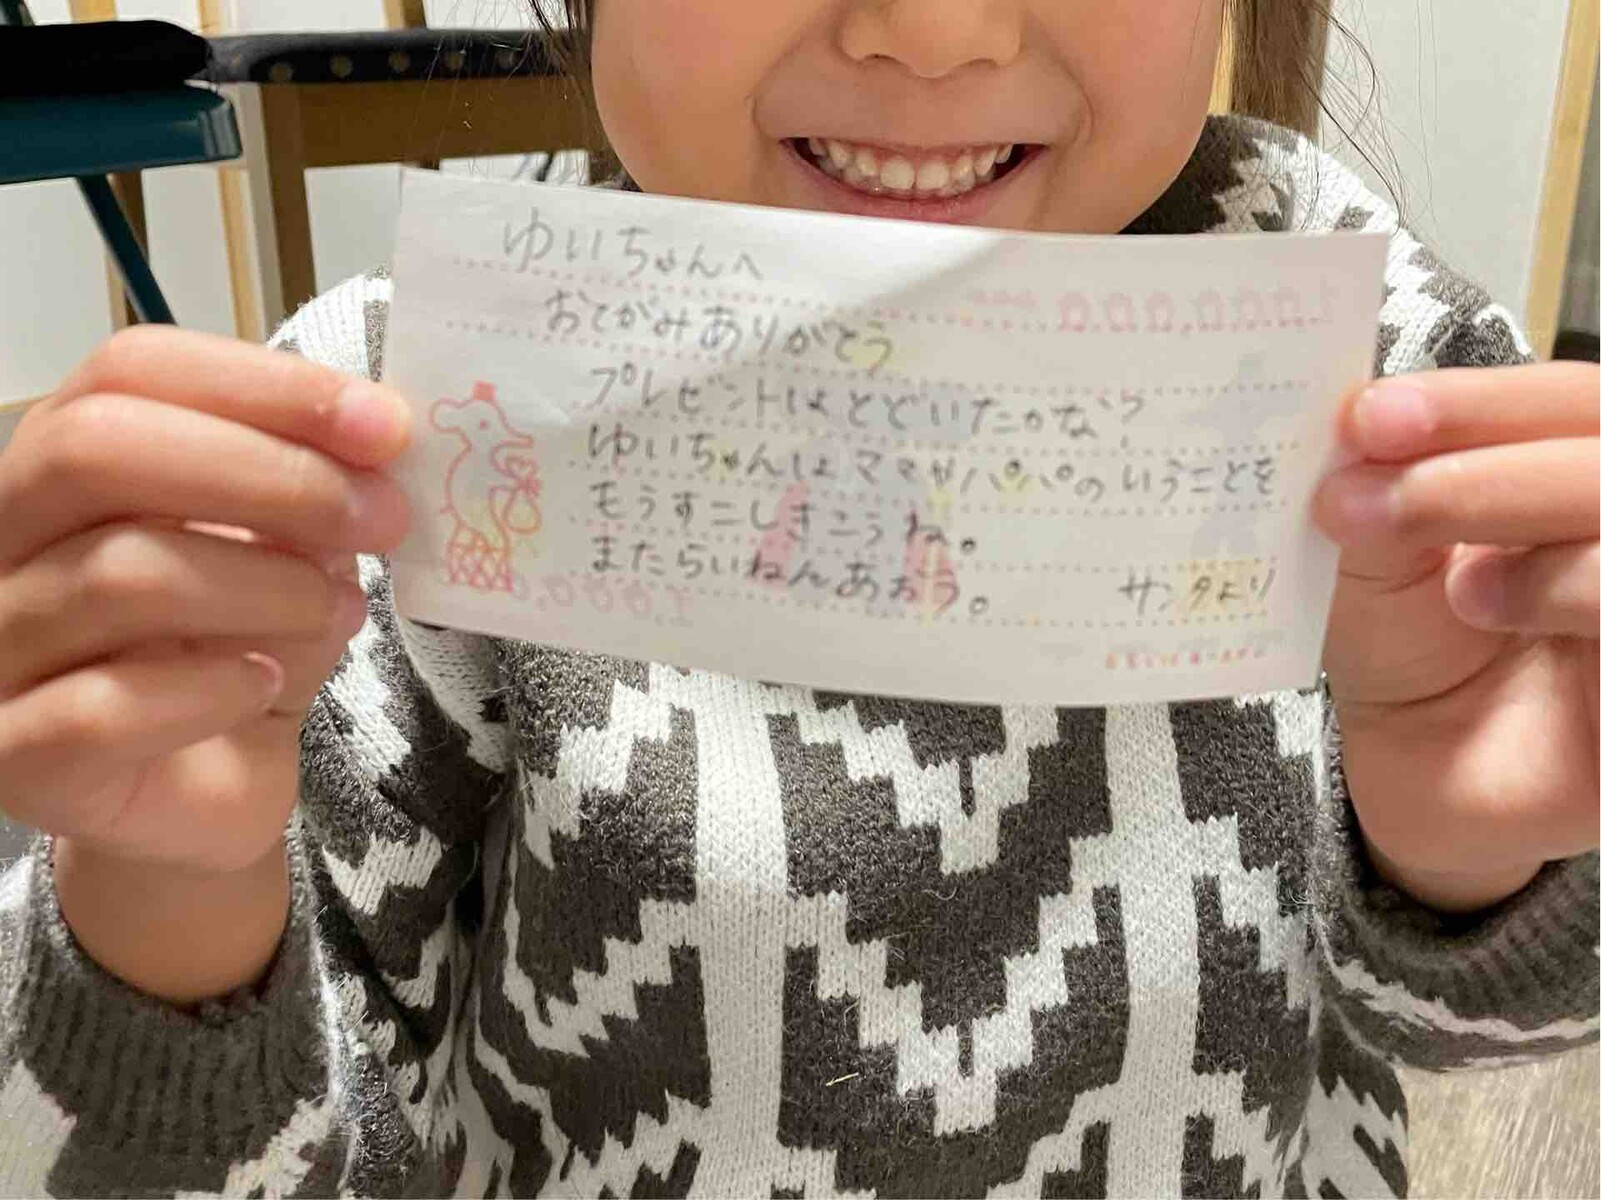 ゆいちゃんへ
おてがみありがとう
プレゼントはとどいたかな?
ゆいちゃんはママやパパのいうことを
もうすこしきこうね。
またらいねんあおう。
サンタより